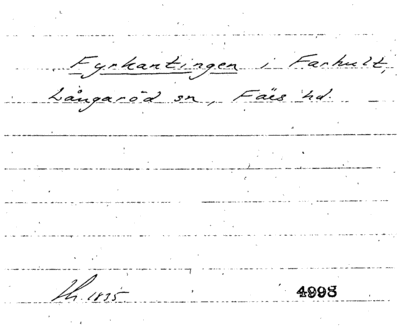 Fyrkantingen i Farhult,
Långaröd sn, Färs hd.
1835 4993